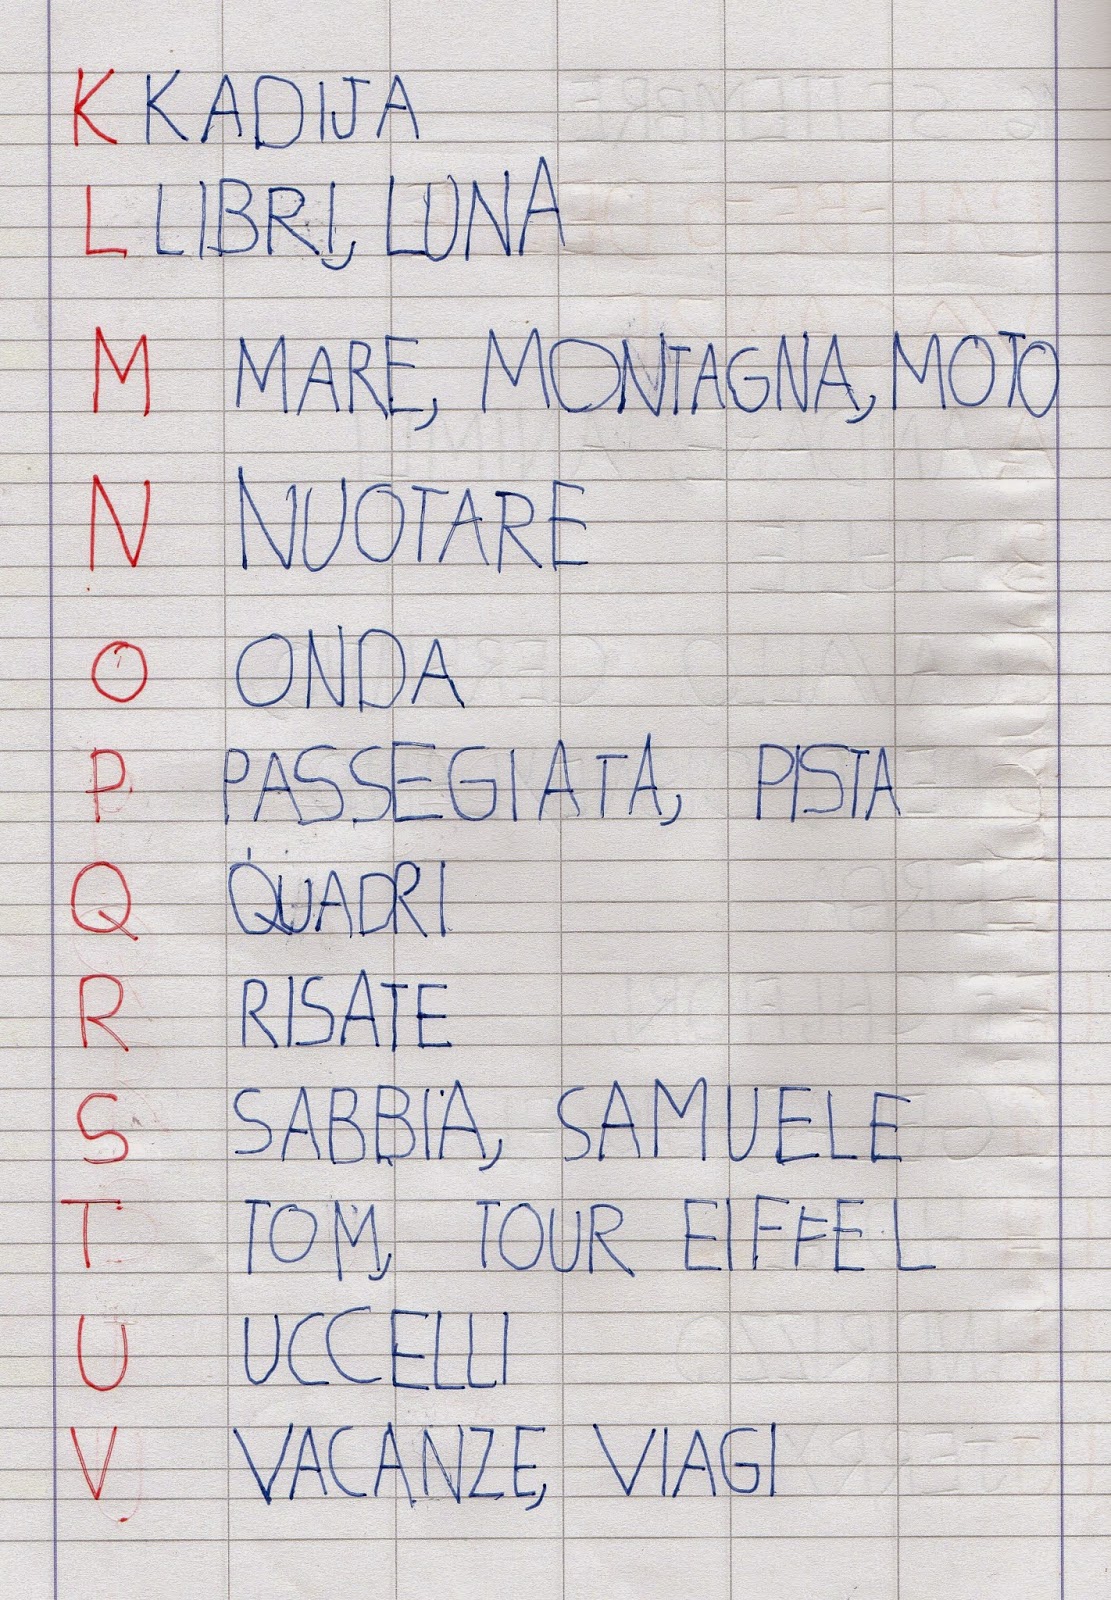 K KADIJA
L LIBRI, LUNA
M MARE, MONTAGNA, MOTO
N NUOTARE
O ONDA
P PASSEGIATA, PISTA
Q QUADRI
R RISATE
S SABBIA, SAMUELE
T TOM, TOUR EIFFEL
U UCCELLI
V VACANZE, VIAGI